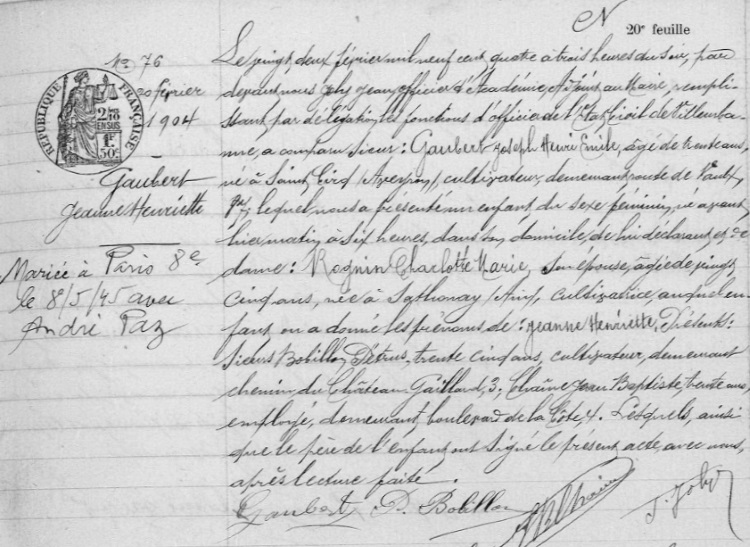 N
20e feuille
No 76
20 février
1904
RÉPUBLIQUE FRANÇAISE
2/10 EN SUS
1F 50c
Gaubert
Jeanne Henriette
Mariée à Paris 8e
le 8/5/45 avec
André Paz
Le vingt deux février mil neuf cent quatre à trois heures du soir, par
devant nous Joly Jean, officier d'Académie, Adjoint au Maire, remplis-
sant par délégation les fonctions d'officier de l'Etat Civil de Villeurban-
ne, a comparu Sieur: Gaubert Joseph Henri Emile, âgé de trente ans,
né à Saint Cirq (Aveyron), cultivateur, demeurant route de Vaulx,
lequel nous a présenté un enfant du sexe féminin, né avant
hier matin à six heures, dans son domicile, de lui déclarant et de
dame: Rognin Charlotte Marie, son épouse, âgée de vingt
cinq ans, née à Sathonay (Ain), cultivatrice, auquel en-
fant on a donné les prénoms de: Jeanne Henriette. Présents:
Sieurs Bobillon Pétrus, trente cinq ans, cultivateur, demeurant
chemin du Château Gaillard, 3; Chaîne Jean Baptiste, trente ans,
employé, demeurant, boulevard de la Côte, 4. Lesquels, ainsi
que le père de l'enfant ont signé le présent acte, avec nous,
après lecture faite.
Gaubert P. Bobillon J. Joly